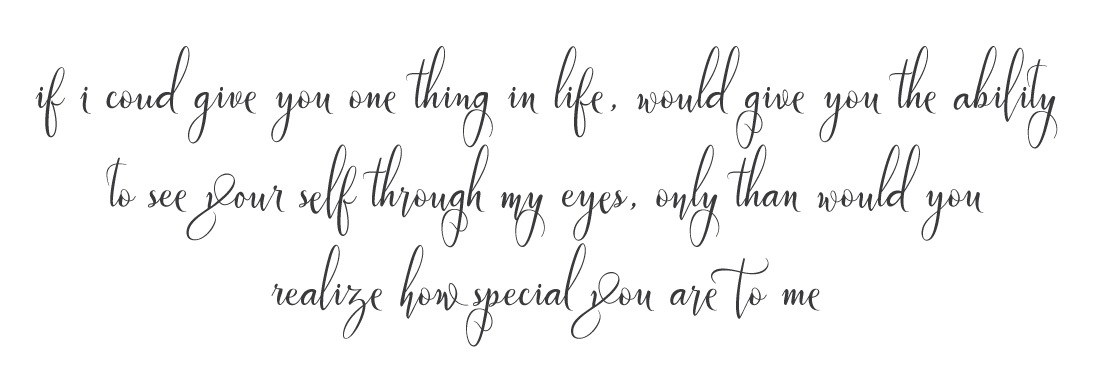 if i coud give you one thing in life, would give you the ability
to see your self through my eyes, only than would you
realize how special you are to me